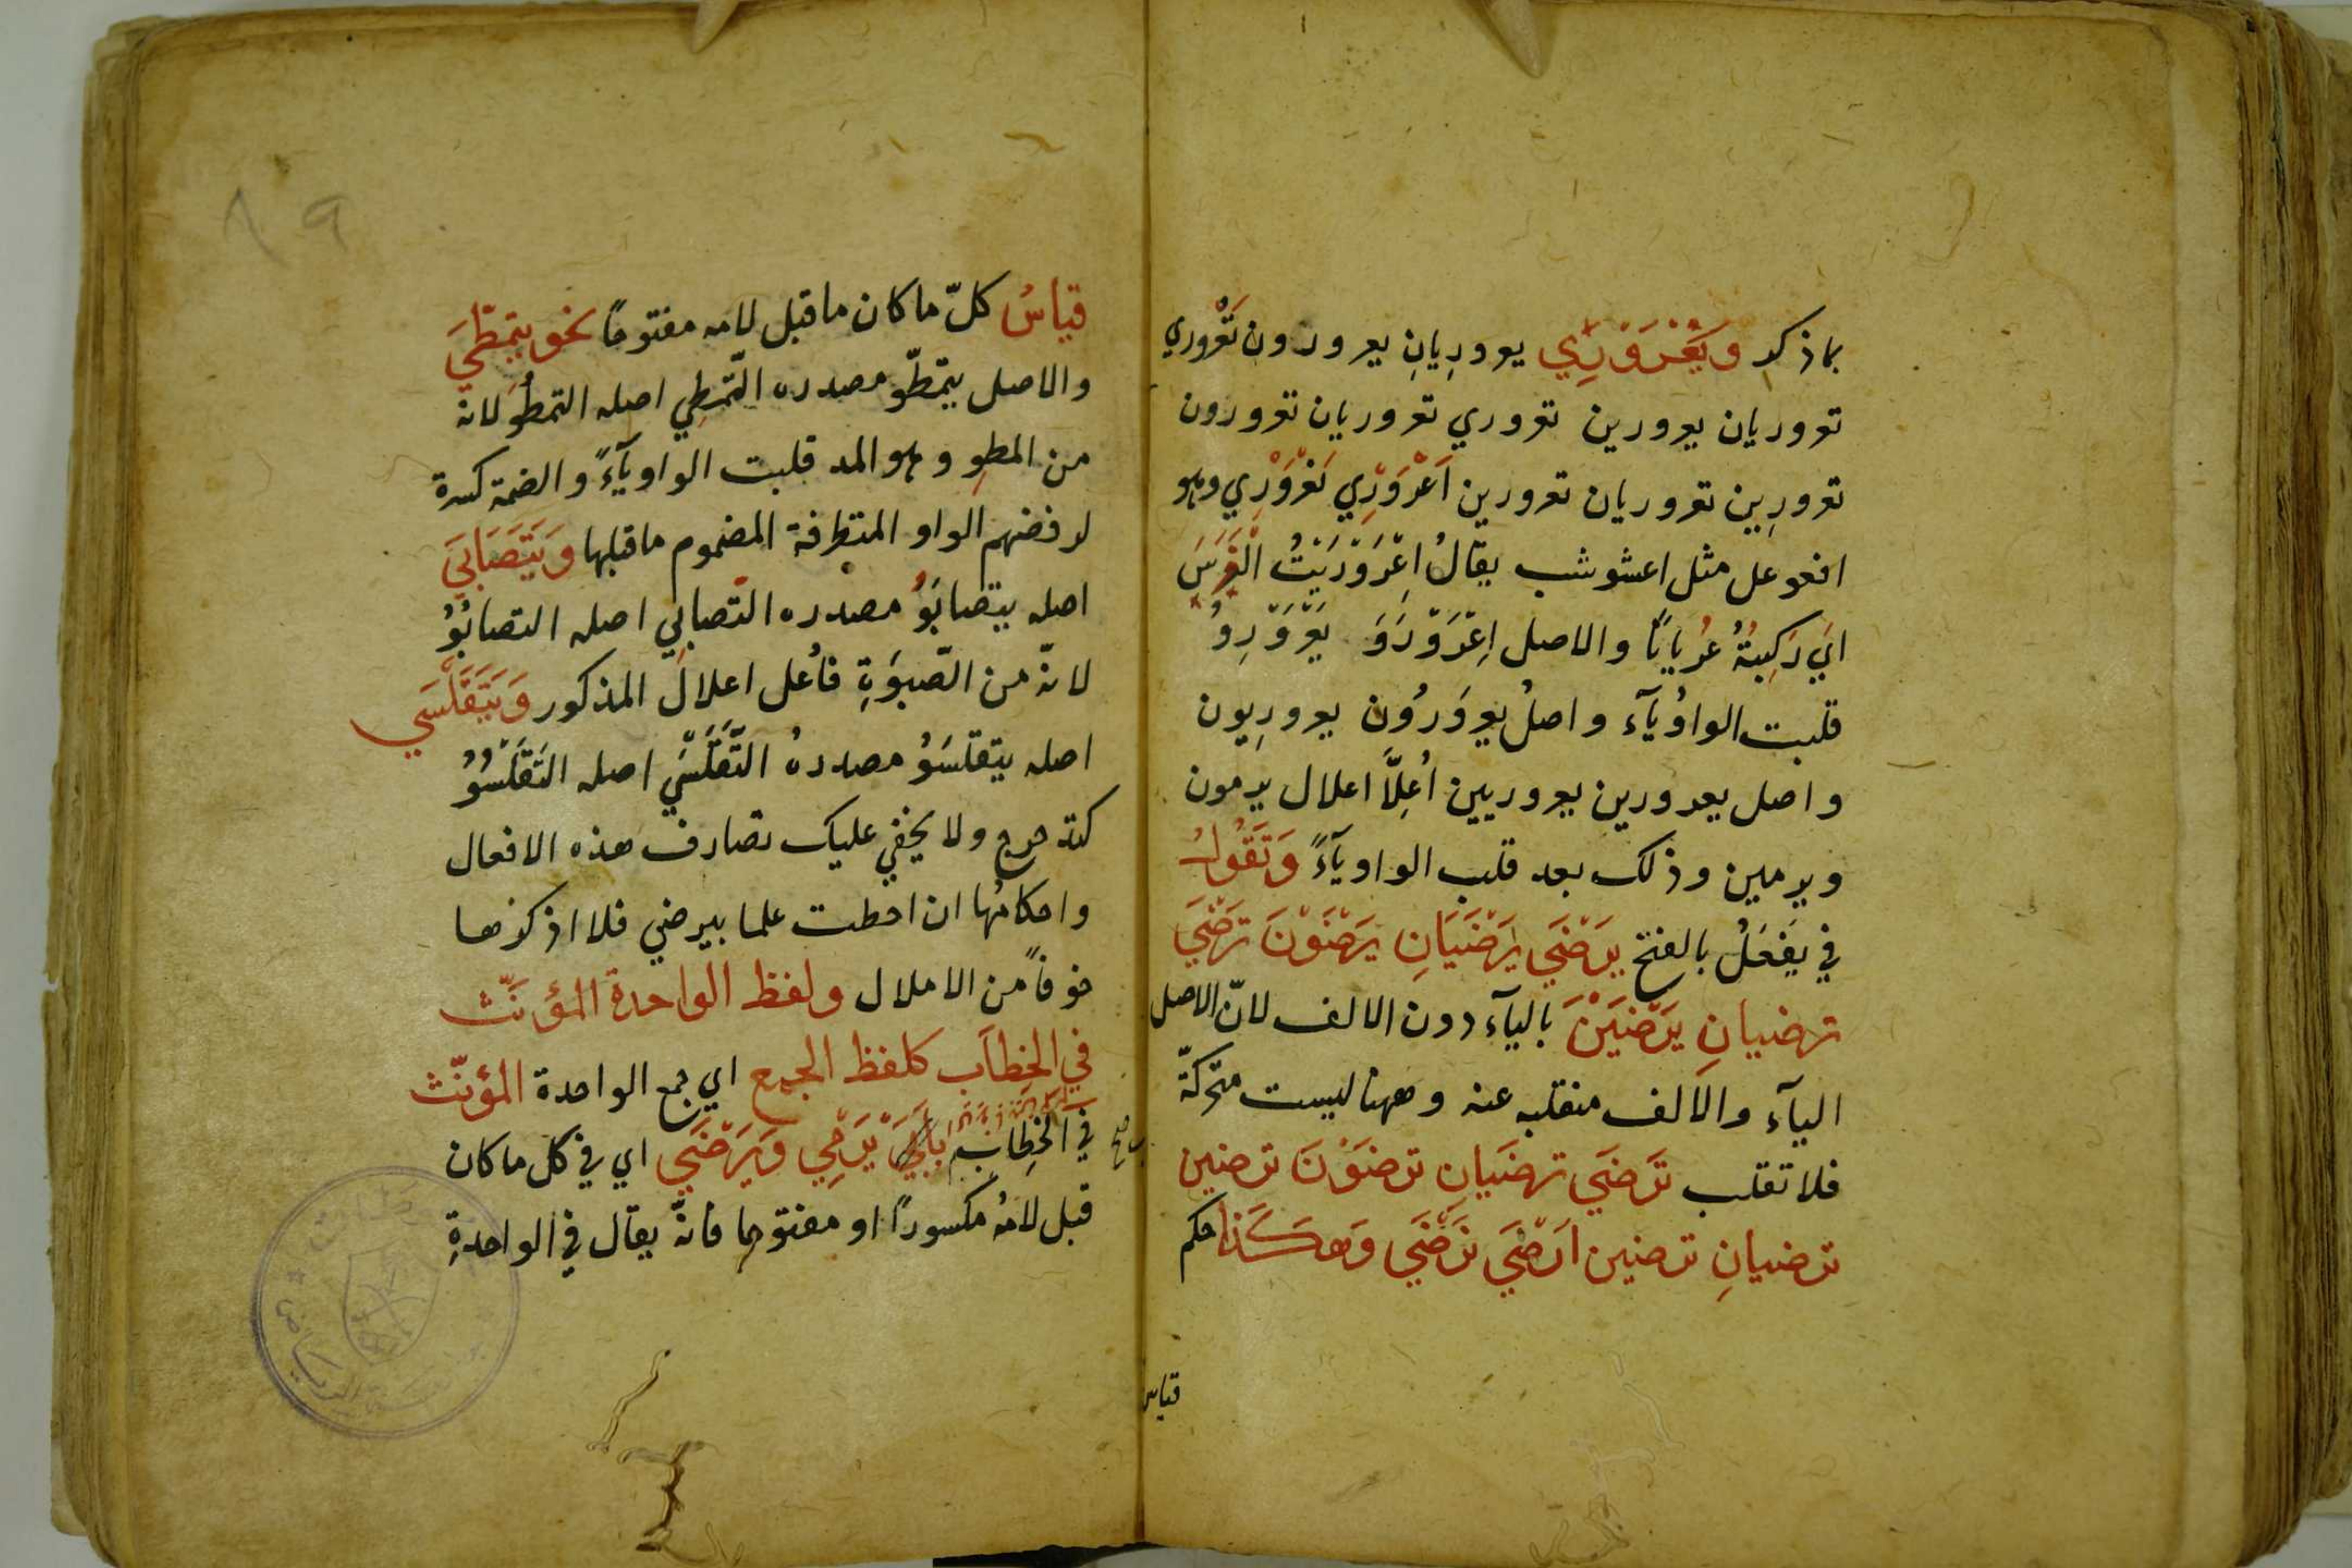 بما ذكر وَيَعْرَوْرِي يعروريانِ يعرورون تَعْروري
تعروريان يعرورين تعروري تعروريان تعرورون
تعرورِين تعروريان تعرورين اَعْرَوْرِي نَعْرَوْرِي وهو
افعوعل مثل اعشوشب يقالُ اِعْرَوْرَيْتُ الْفَرَسَ
اَي رَكِبتُهُ عُرْيانًا والاصل اِعْرَوْرَوَ يَعْرَوْرِوُ
قلبت الواوُ يآء واصلُ يعرَورُون يعرورِيون
واصل يعرورين يعروريين اُعِلَّا اعلال يرمون
ويرمين وذلك بعد قلب الواو يآءً وَتَقُولُ
في يَفعَلُ بالفتح يَرْضَي يَرْضَيَانِ يَرْضَوْنَ تَرْضَي
ترضيانِ يَرْضَيْنَ بالياء دون الالف لانّ الاصل
اليآء والالف منقلبه عنه وههنا ليست متحركّة
فلا تقلب تَرضَي ترضَيانِ ترضَوْنَ ترضين
ترضيانِ ترضين اَرْضَي نَرْضَي وَهكَذا حكم
قياس
قياسُ كلّ ما كان ما قبل لامه مفتوحًا نحو يتمطّيَ
والاصل يتمطّو مصدره التّمطِي اصله التمطُوُ لانه
من المطوِ وهو المد قلبت الواو يآءً والضمة كسرة
لرفضهم الواو المتطرفة المضموم ما قبلها وَيَتَصَابَيَ
اصله يتصابَوُ مصدره التّصابِي اصله التصابُوُ
لانّه من الصّبوَةِ فاُعل اعلالَ المذكور وَيَتَقَلْسَي
اصله يتقلسَوُ مصدرهُ التَّقَلْسِي اصله التَقَلْسُوُ
كتدحرج ولا يخفي عليك تصارف هذه الافعال
واحكامُها ان احطت علما بيرضي فلا اذكرها
خوفاً من الاملال ولفظ الواحدة المؤنّث
في الخِطاَب كلفظ الجمع اي جمع الواحدة المؤنّث
في الخِطابِ يَرْمِي وَيَرْضَي اي في كل ما كان
قبل لامُه مكسوراً او مفتوحا فانّه يقال في الواحدةِ